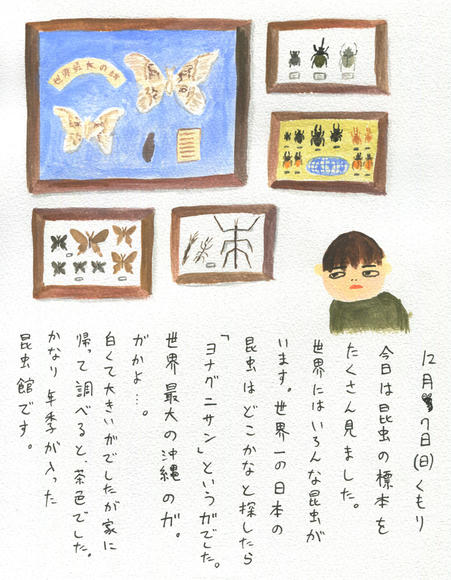 世界最大の蛾
12月7日(日)くもり
今日は昆虫の標本を
たくさん見ました。
世界にはいろんな昆虫が
います。世界一の日本の
昆虫はどこかなと探したら
「ヨナグニサン」というガでした。
世界最大の沖縄のガ。
ガかよ…。
白くて大きいガでしたが家に
帰って調べると、茶色でした。
かなり年季が入った
昆虫館です。